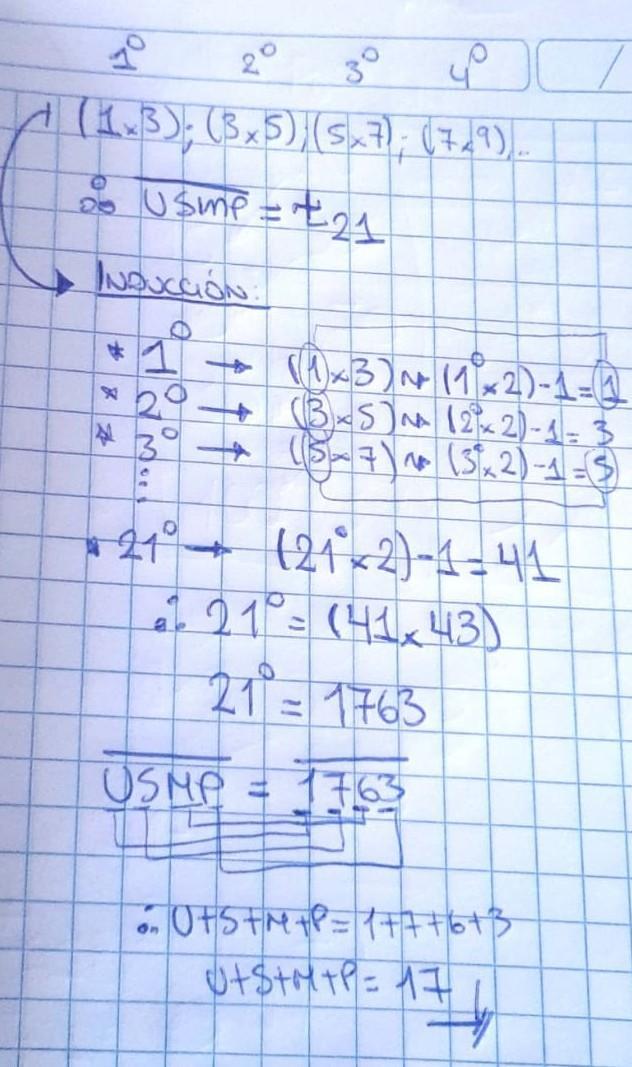 1° 2° 3° 4° /
(1x3); (3x5); (5x7); (7x9),..
∴ USMP = t21
INDUCCIÓN:
* 1° → (1x3) ~ (1°x2)-1=1
* 2° → (3x5) ~ (2°x2)-1=3
* 3° → (5x7) ~ (3°x2)-1=5
⋮
• 21° → (21°x2)-1=41
∴ 21° = (41x43)
21° = 1763
USMP = 1763
∴ U+S+M+P = 1+7+6+3
U+S+M+P = 17